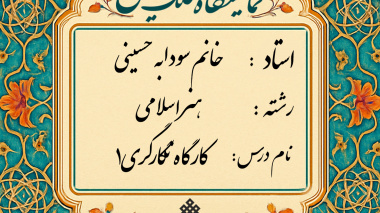 نمایشگاه
استاد : خانم سودابه حسینی
رشته : هنر اسلامی
نام درس: کارگاه نگارگری۱